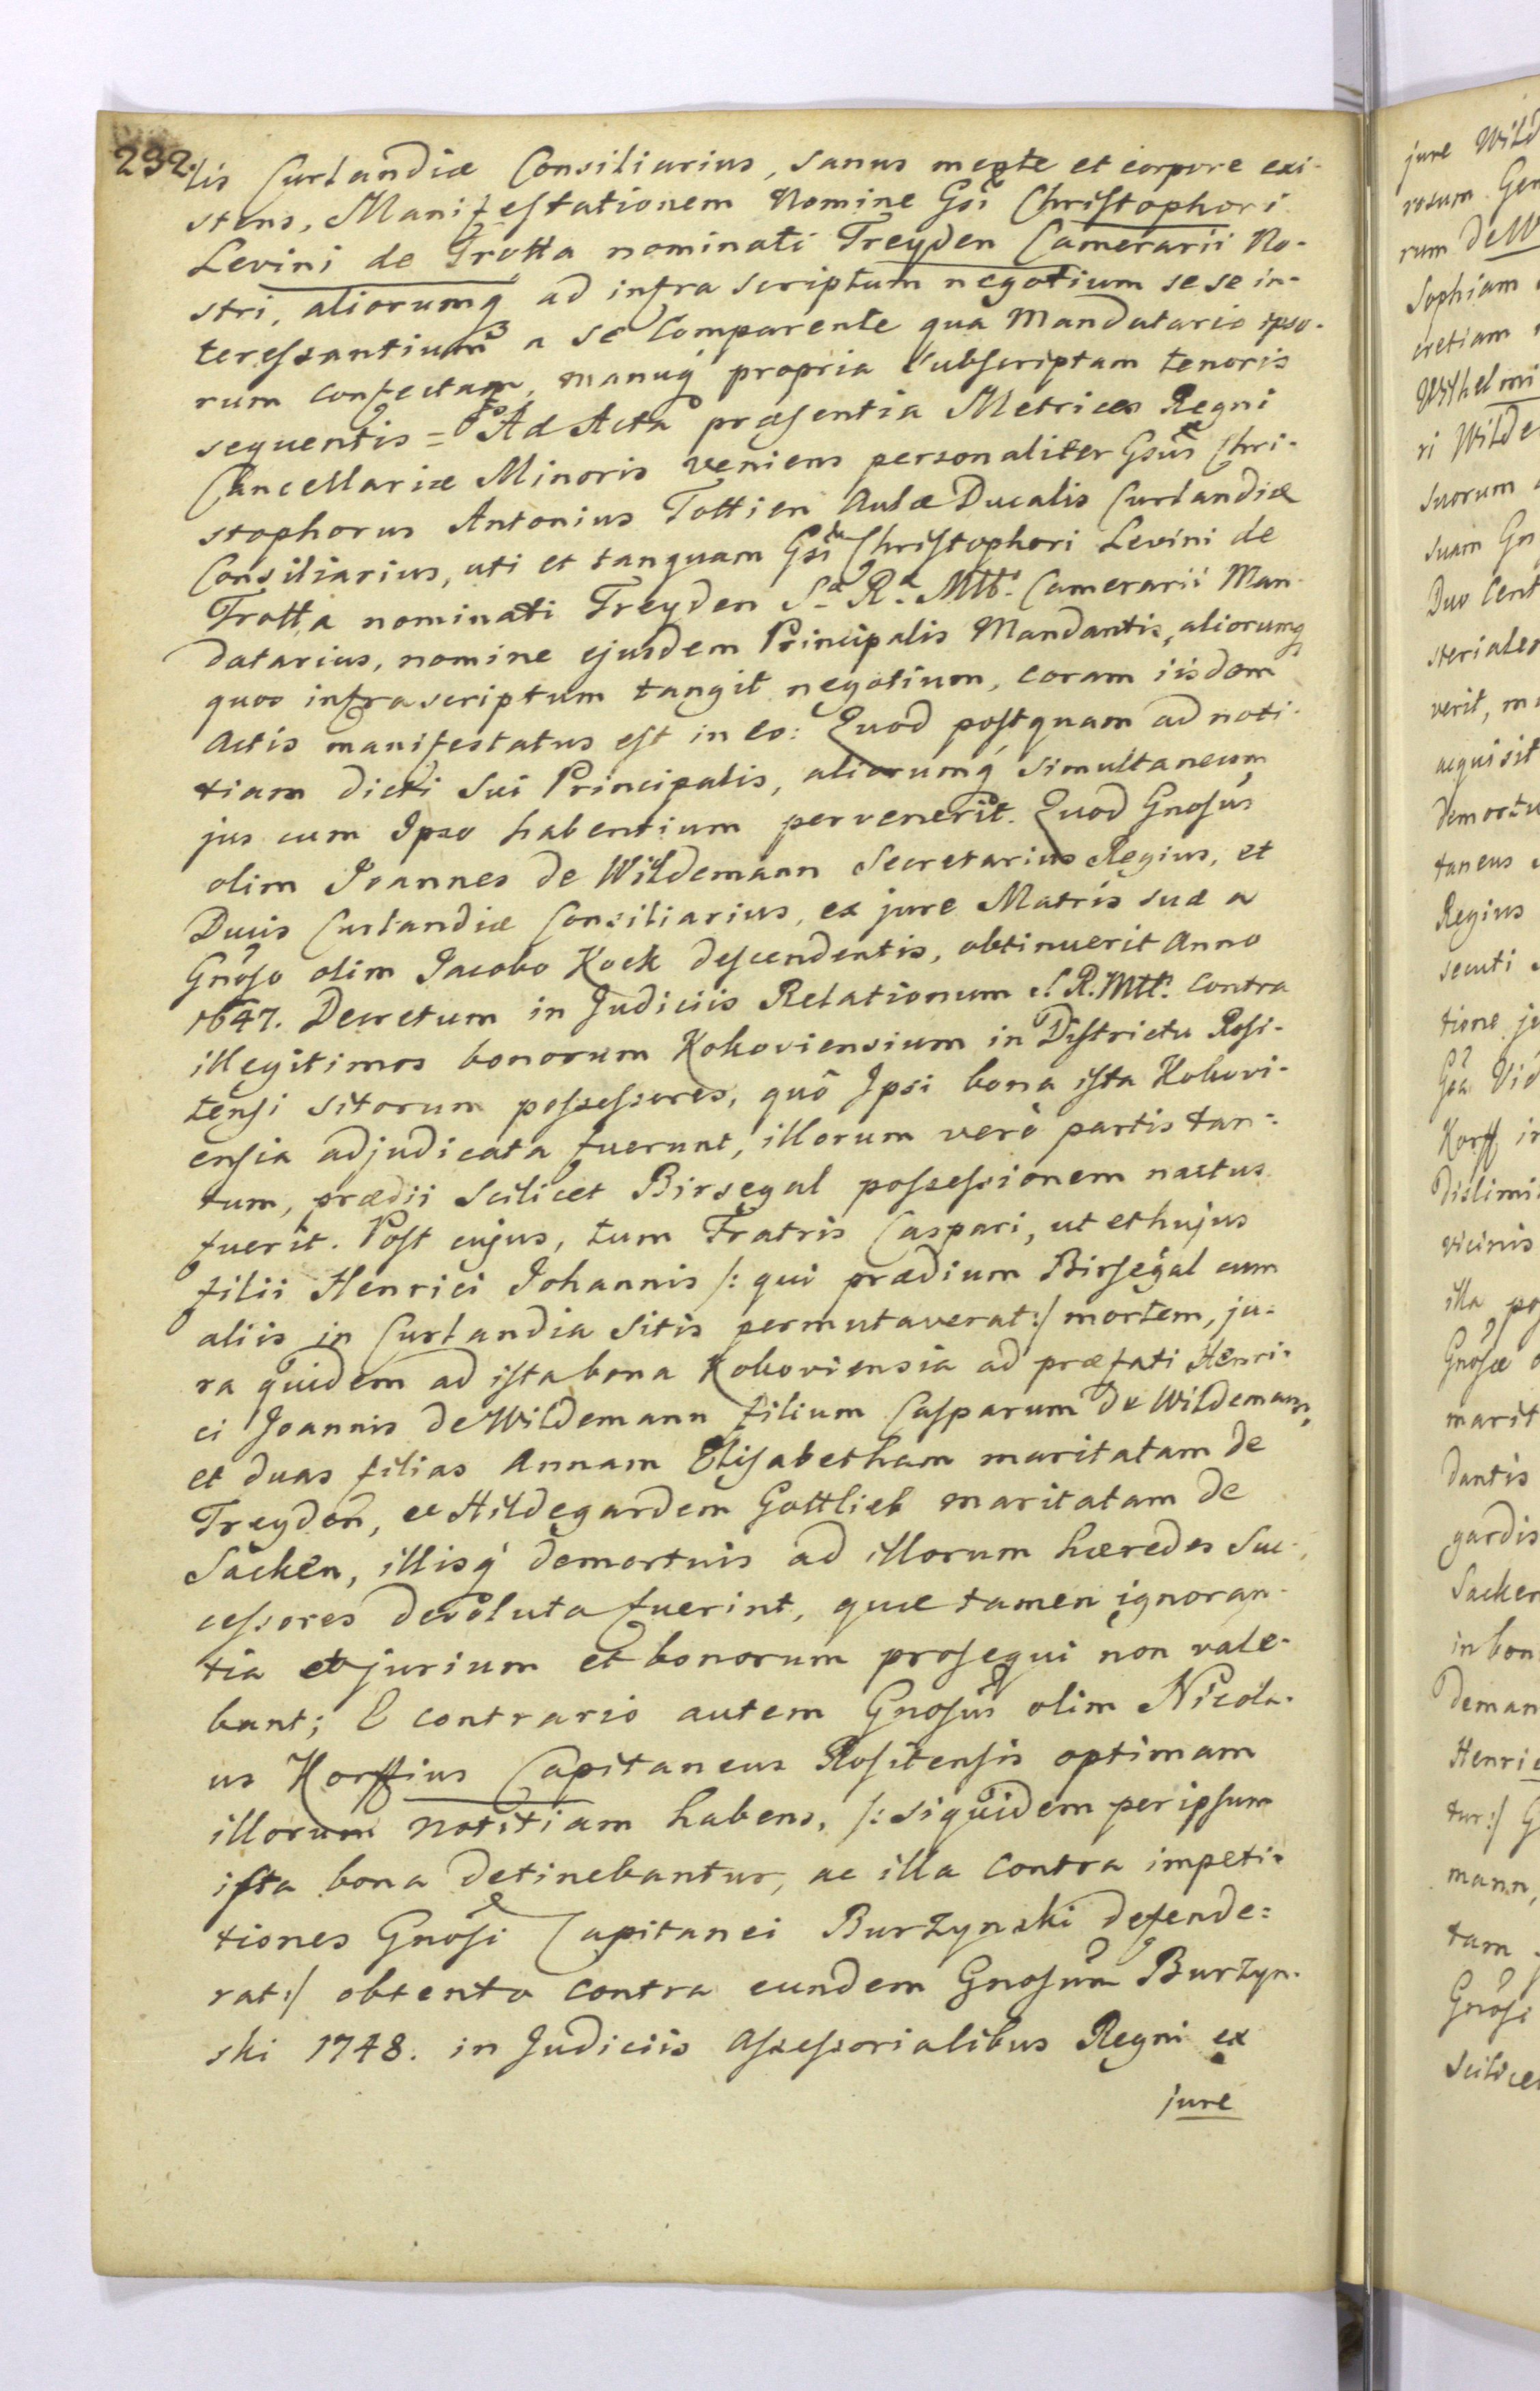 232.
lis Curlandiæ Consiliarius, sanus mente et corpore exi-
stens, Manifestationem Nomine Gsi Christophori
Levini de Trotta nominati Treyden Camerarii No-
stri, aliorumq ad infra scriptum negotium se se in-
teressantium a se Comparente qua Mandatario ipso-
rum confectam, manuq propria Subscriptam tenoris
sequentis = Ad Acta præsentia Metrices Regni
Cancellariæ Minoris veniens personaliter Gsus Chri-
stophorus Antonius Tottien Aulæ Ducalis Curlandiæ
Consiliarius, uti et tanquam Gsi Christophori Levini de
Trotta nominati Treyden S. R. Mtt. Camerarii Man-
datarius, nomine ejusdem Principalis Mandantis, aliorumq
quos infrascriptum tangit negotium, coram iisdem
Actis manifestatus est in eo: Quod postquam ad noti-
tiam dicti Sui Principalis, aliorumq simultaneum
jus cum Ipso habentium pervenerit. Quod Gnosus
olim Joannes de Wildemann Secretarius Regius, et
Ducis Curlandiæ Consiliarius, ex jure Matris suæ a
Gnoso olim Jacobo Kock descendentis, obtinuerit Anno
1647. Decretum in Judiciis Relationum S. R. Mtt. contra
illegitimos bonorum Kokoviensium in Districtu Rosi-
tensi sitorum possessores, quô Ipsi bona ista Kokovi-
ensia adjudicata fuerunt, illorum verò partis tan-
tum, prædii scilicet Birsegal possessionem nactus
fuerit. Post cujus, tum Fratris Caspari, ut et hujus
filii Henrici Johannis /: qui prædium Birsegal cum
aliis in Curlandia sitis permutaverat :/ mortem, ju-
ra quidem ad ista bona Kokoviensia ad præfati Henri-
ci Joannis de Wildemann filium Casparum de Wildemann,
et duas filias Annam Elisabetham maritatam de
Treyden, et Hildegardem Gottlieb maritatam de
Sacken, illisq demortuis ad illorum hæredes Suc-
cessores devoluta fuerint, quæ tamen ignoran-
tia et jurium et bonorum prosequi non vale-
bant; E contrario autem Gnosus olim Nicola-
us Korffius Capitaneus Rositensis optimam
illorum notitiam habens, /: siquidem per ipsum
ista bona detinebantur, ac illa contra impeti-
tiones Gnosi Capitanei Burzynski defende-
rat :/ obtento contra eundem Gnosum Burzyn-
ski 1748. in Judiciis Assessorialibus Regni ex
jure
jure
rum de
Sophiam
cretiam
ri Wilde
suorum
suam
Duo Cent
steriales
verit,
acquisit
demortu
taneus
Regius
secuti
tione
Gsa Vid
Korff in
vicinis
illa
Gnosæ
marit
dantis
gardis
Sacken
in bon
deman
Henric
tur :/ G
mann,
tam
Gnosi
scilicet